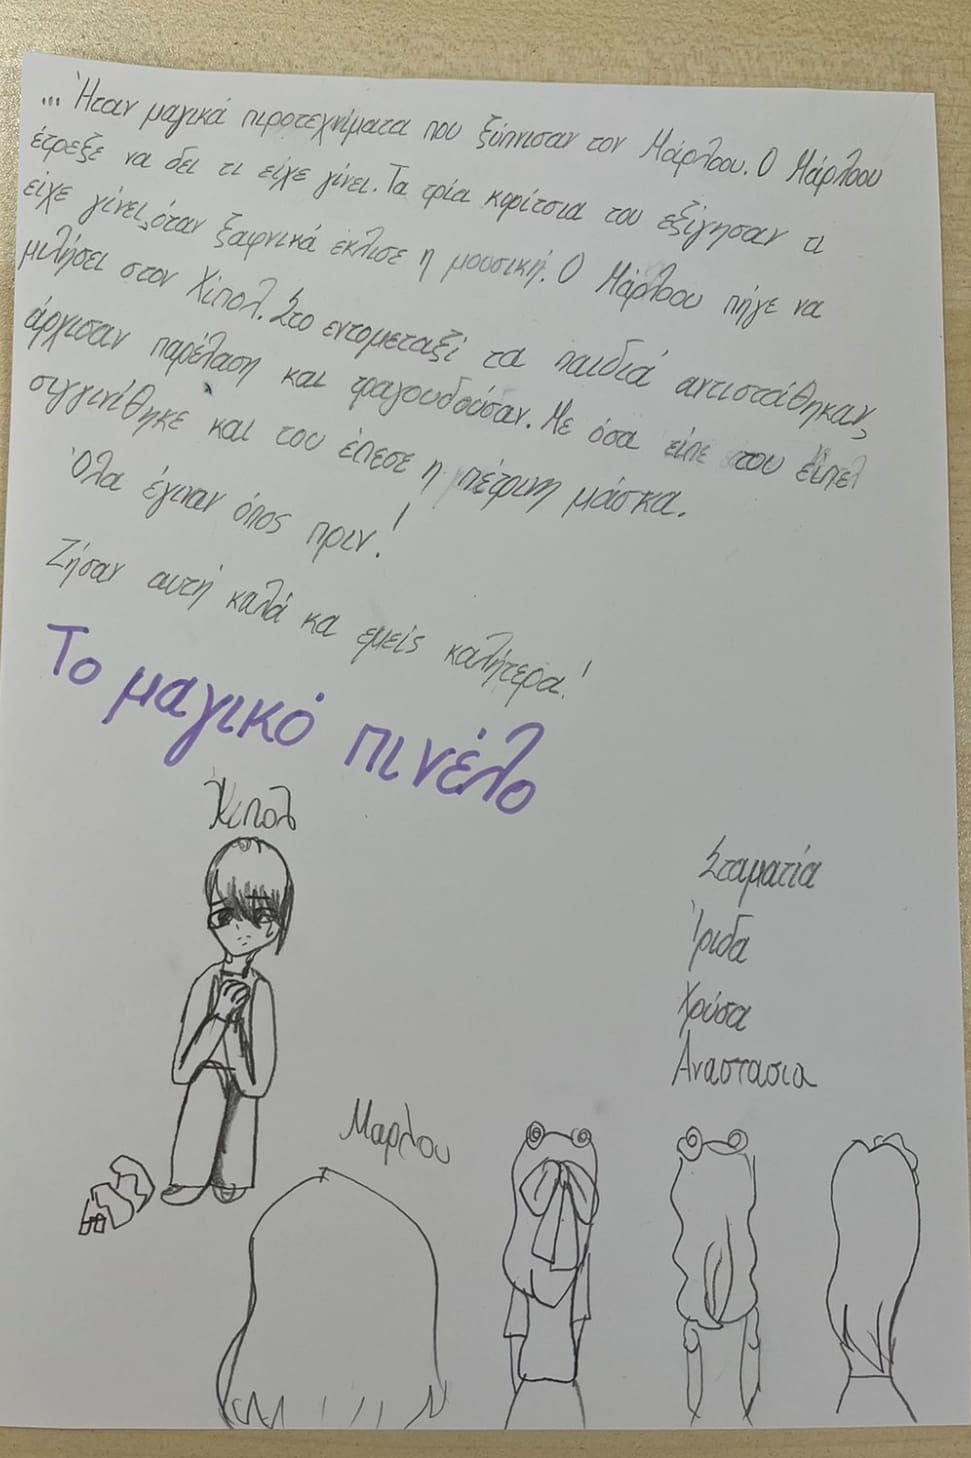 ... Ήταν μαγικά πιροτεχνίματα που ξύπνισαν τον Μάρλοου. Ο Μάρλοου
έτρεξε να δει τι είχε γίνει. Τα τρία κορίτσια του εξίγησαν τι
είχε γίνει, όταν ξαφνικά έκλισε η μουσική. Ο Μάρλοου πήγε να
μιλήσει στον Χίπολ. Στο εντομεταξί τα παιδιά αντιστάθηκαν,
άρχισαν παρέλαση και τραγουδούσαν. Με όσα είπε του είπε
σιγγινίθηκε και του έπεσε η πέτρινη μάσκα.
Όλα έγιναν όπος πριν!
Ζήσαν αυτή καλά κα εμείς καλήτερα!
Το μαγικό πινέλο
Χιπολ
Σταματία
Ίριδα
Χρύσα
Αναστασια
Μαρλου